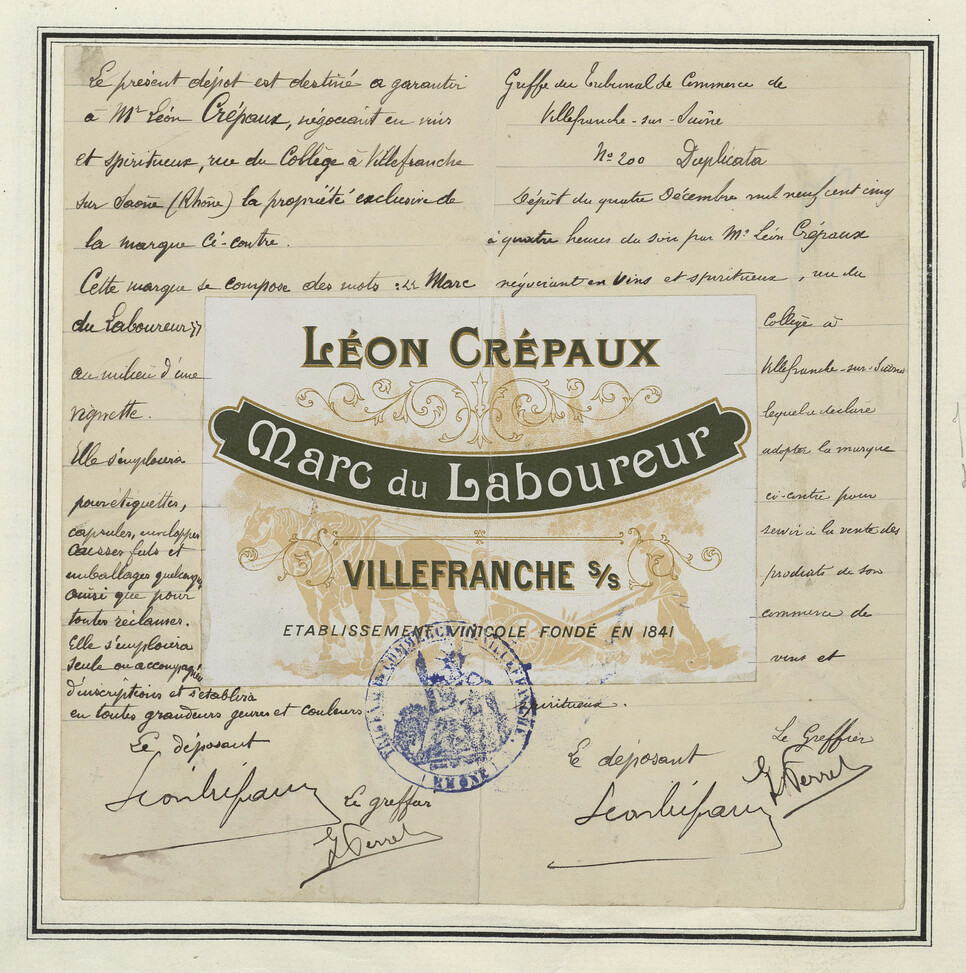 Le présent dépôt est destiné a garantir
à Mr Léon Crépaux, négociant en vins
et spiritueux, rue du Collège à Villefranche
sur Saône (Rhône) la propriété exclusive de
la marque ci-contre.
Cette marque se compose des mots : " Marc
du Laboureur "
au milieu d'une
vignette.
Elle s'emploiera
pour étiquettes,
capsules, enveloppes
caisses fûts et
emballages quelconques
ainsi que pour
toutes réclames.
Elle s'emploiera
seule ou accompagnée
d'inscriptions et s'établira
en toutes grandeurs genres et couleurs
Le déposant
Léon Crépaux
Le greffier
Greffe du Tribunal de Commerce de
Villefranche-sur-Saône
No 200 Duplicata
Dépôt du quatre Décembre mil neuf cent cinq
à quatre heures du soir par Mr Léon Crépaux
négociant en vins et spiritueux, rue du
Collège à
Villefranche-sur-Saône
lequel a déclaré
adopter la marque
ci-contre pour
servir à la vente des
produits de son
commerce de
vins et
spiritueux.
Le déposant
Léon Crépaux
Le Greffier
LÉON CRÉPAUX
Marc du Laboureur
VILLEFRANCHE S/S
ETABLISSEMENT VINICOLE FONDÉ EN 1841
TRIBUNAL DE COMMERCE DE VILLEFRANCHE
(RHÔNE)